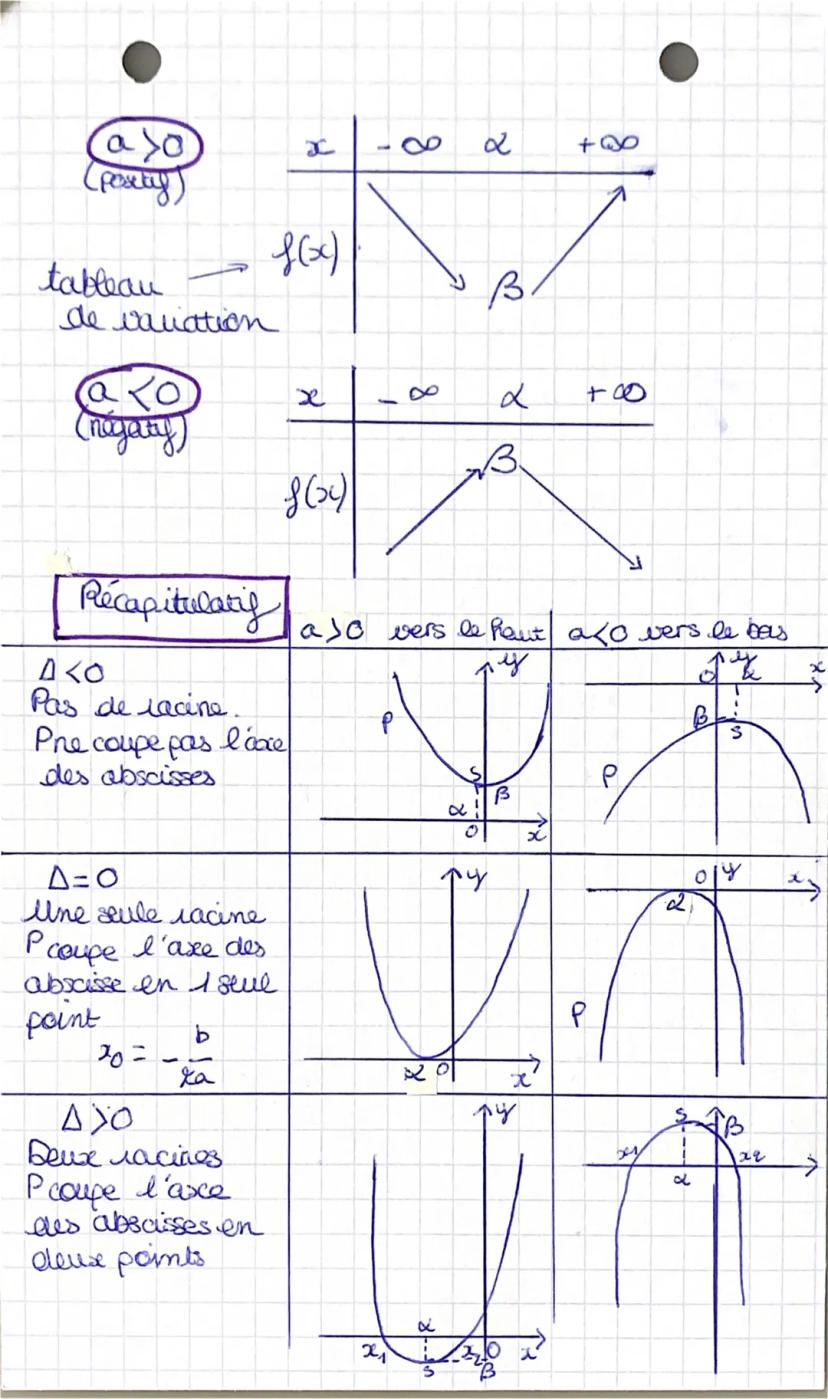 a>0
(positif)
x -∞ α +∞
f(x)
β
tableau
de variation
a<0
(négatif)
x -∞ α +∞
β
f(x)
Récapitulatif
a>0 vers le haut
a<0 vers le bas
Δ<0
Pas de racine.
P ne coupe pas l'axe
des abscisses
P
y
S
β
α
O
x
O
y
α
x
β
S
P
Δ=0
Une seule racine
P coupe l'axe des
abscisse en 1 seul
point
x0 = - b/2a
y
α O
x
O y
x
α
P
Δ>0
Deux racines
P coupe l'axe
des abscisses en
deux points
y
α
x1
x2 O
x
S
β
S
β
x1
x2
α